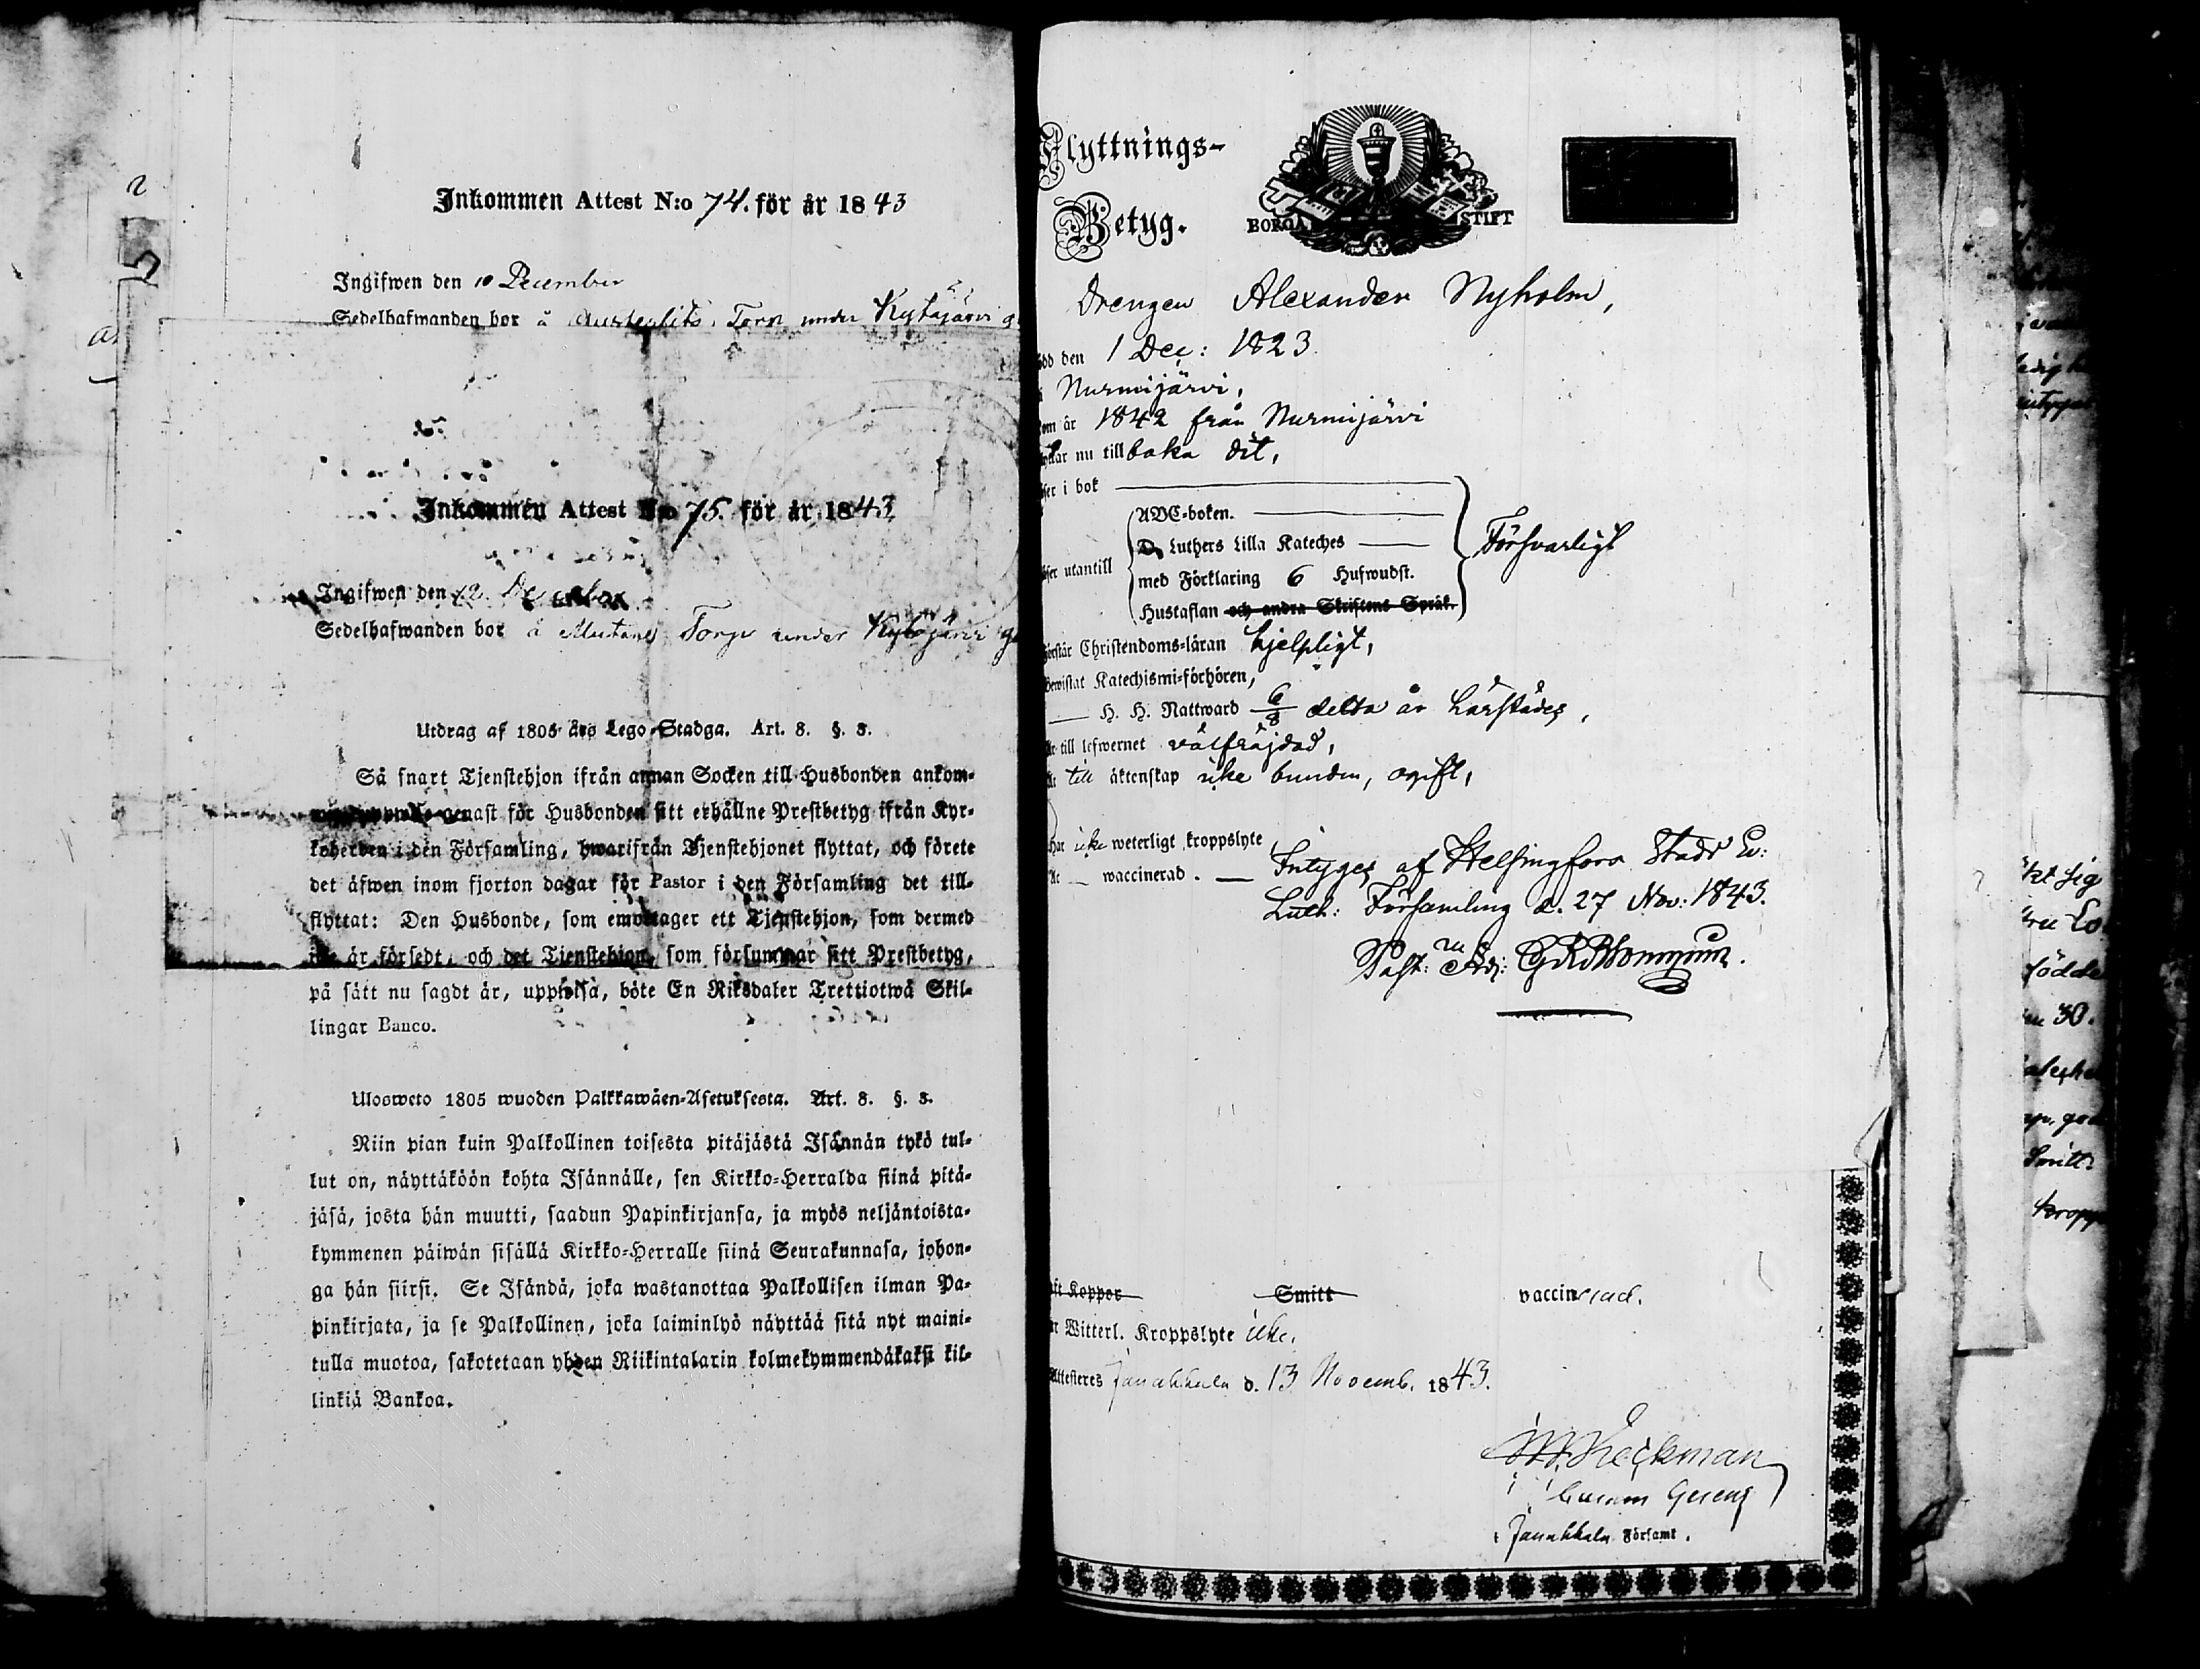 Inkommen Attest N:o 74. för år 1843
Ingifwen den 10 December
Sedelhafwanden bor å Austerlits Torp under Kytäjärvi
Inkommen Attest N:o 75. för år 1843
Ingifwen den 12 December
Sedelhafwanden bor å Torp under Kytäjärvi
Utdrag af 1805 års Lego-Stadga. Art. 8. §. 3.
Så snart Tjenstehjon ifrån annan Socken till Husbonden ankom-
genast för Husbonden sitt erhållne Prestbetyg ifrån Kyr-
koherden i den Församling, hwarifrån Tjenstehjonet flyttat, och förete
det äfwen inom fjorton dagar för Pastor i den Församling det till-
flyttat: Den Husbonde, som emottager ett Tjenstehjon, som dermed
är försedt, och det Tjenstehjon, som försummar sitt Prestbetyg,
på sätt nu sagdt är, uppwisa, böte En Riksdaler Trettiotwå Skil-
lingar Banco.
Ulosweto 1805 wuoden Palkkawäen-Asetuksesta. Art. 8. §. 3.
Niin pian kuin Palkollinen toisesta pitäjästä Isännän tykö tul-
lut on, näyttäköön kohta Isännälle, sen Kirkko-Herralda siinä pitä-
jäsä, josta hän muutti, saadun Papinkirjansa, ja myös neljäntoista-
kymmenen päiwän sisällä Kirkko-Herralle siinä Seurakunnasa, johon-
ga hän siirsi. Se Isändä, joka wastanottaa Palkollisen ilman Pa-
pinkirjata, ja se Palkollinen, joka laiminlyö näyttää sitä nyt maini-
tulla muotoa, sakotetaan yhden Riikintalarin kolmekymmendäkaksi kil-
linkiä Bankoa.
Flyttnings-
Betyg.
BORGÅ STIFT
Drengen Alexander Nyholm,
ödd den 1 Dec: 1823.
i Nurmijärvi,
om år 1842 från Nurmijärvi
yttar nu tillbaka dit,
äser i bok
ABC-boken.
D. Luthers Lilla Kateches
äser utantill
med Förklaring 6 Hufwudst.
Hustaflan och andra Skriftens Språk.
Försvarligt
örstår Christendoms-läran hjelpligt,
Bewistat Katechismi-förhören,
H. H. Nattward 6/8 detta år härstädes,
Är till lefwernet välfräjdad,
Är till äktenskap icke bunden, ogift,
Har icke weterligt kroppslyte
Är waccinerad.
Intyges af Helsingfors Stads Ev:
Luth: Församling d. 27 Nov: 1843.
Past: Adj:
aft Koppor Smitt vaccinerad.
r Witterl. Kroppslyte icke.
Attesteres Janakkala d. 13 Novemb. 1843.
Heckman
i Janakkala Församl.